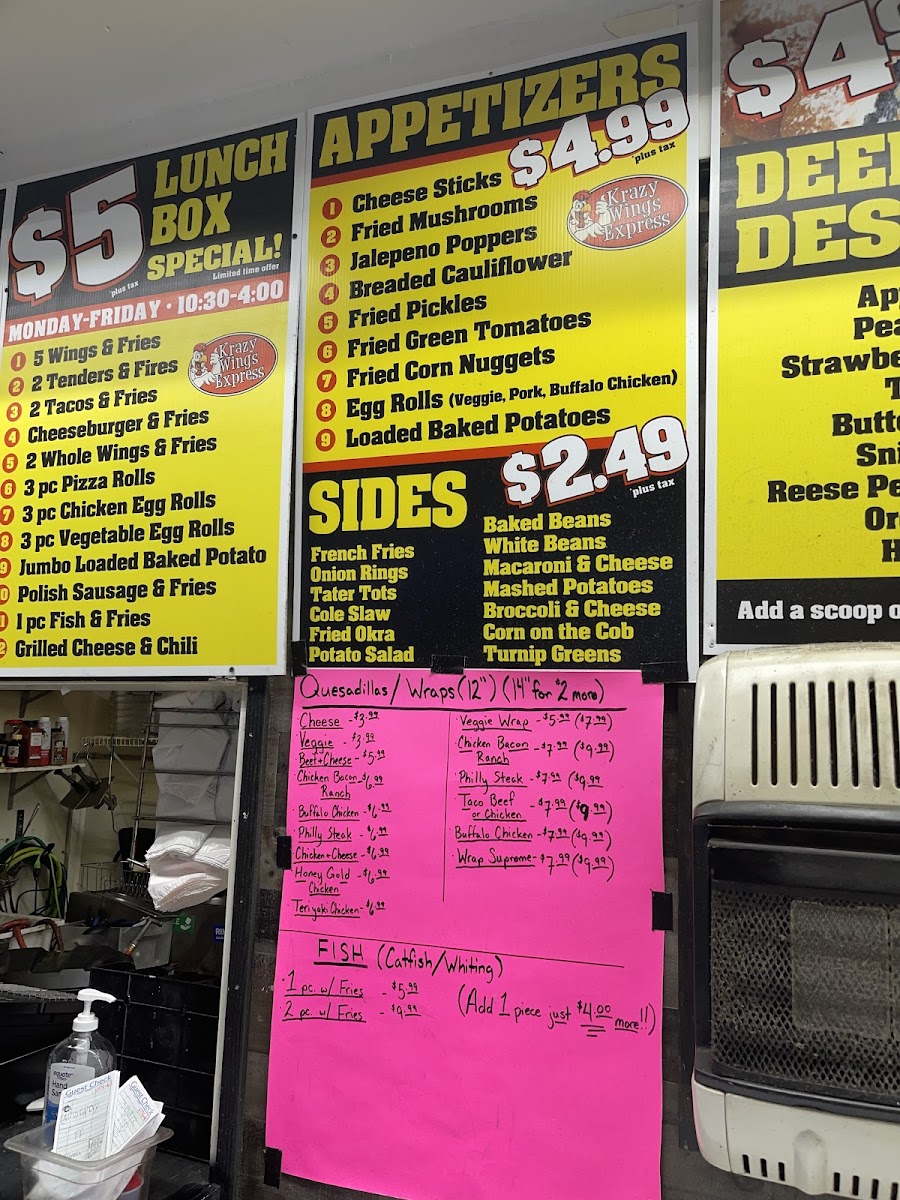 $5 LUNCH
BOX
SPECIAL!
Limited time offer
*plus tax
MONDAY-FRIDAY • 10:30-4:00
Krazy
Wings
Express
1 5 Wings & Fries
2 2 Tenders & Fires
3 2 Tacos & Fries
4 Cheeseburger & Fries
5 2 Whole Wings & Fries
6 3 pc Pizza Rolls
7 3 pc Chicken Egg Rolls
8 3 pc Vegetable Egg Rolls
9 Jumbo Loaded Baked Potato
0 Polish Sausage & Fries
1 pc Fish & Fries
2 Grilled Cheese & Chili
APPETIZERS
$4.99
*plus tax
Krazy
Wings
Express
1 Cheese Sticks
2 Fried Mushrooms
3 Jalepeno Poppers
4 Breaded Cauliflower
5 Fried Pickles
6 Fried Green Tomatoes
7 Fried Corn Nuggets
8 Egg Rolls (Veggie, Pork, Buffalo Chicken)
9 Loaded Baked Potatoes
SIDES
$2.49
*plus tax
French Fries
Onion Rings
Tater Tots
Cole Slaw
Fried Okra
Potato Salad
Baked Beans
White Beans
Macaroni & Cheese
Mashed Potatoes
Broccoli & Cheese
Corn on the Cob
Turnip Greens
$49
DEE
DES
Ap
Pea
Strawbe
T
Butt
Sni
Reese Pe
Or
H
Add a scoop o
Quesadillas/Wraps (12") (14" for $2 more)
Cheese - $3.99
Veggie - $3.99
Beef+Cheese - $5.99
Chicken Bacon - $6.99
Ranch
Buffalo Chicken - $6.99
Philly Steak - $6.99
Chicken+Cheese - $6.99
Honey Gold - $6.99
Chicken
Teriyaki Chicken - $6.99
Veggie Wrap - $5.99 ($7.99)
Chicken Bacon - $7.99 ($9.99)
Ranch
Philly Steak - $7.99 ($9.99
Taco Beef - $7.99 ($9.99)
or Chicken
Buffalo Chicken - $7.99 ($9.99)
Wrap Supreme - $7.99 ($9.99)
FISH (Catfish/Whiting)
1 pc. w/ Fries - $5.99
2 pc. w/ Fries - $9.99
(Add 1 piece just $4.00 more!!)
equate
Hand
San
Guest Check
Guest Check